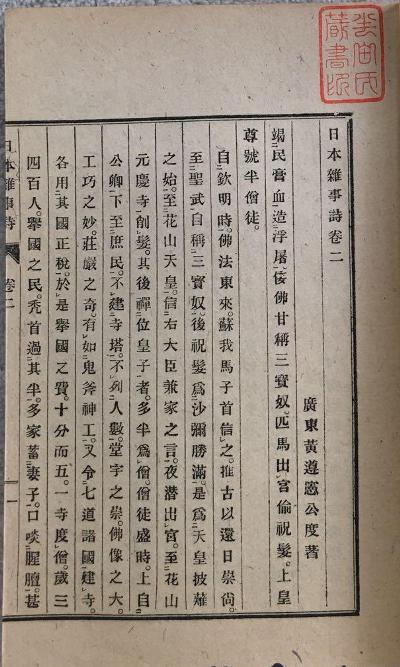 日本雜事詩卷二
廣東黃遵憲公度著
竭民膏血造浮屠。佞佛甘稱三寶奴。匹馬出宮偷祝髮。上皇
尊號半僧徒。
自欽明時。佛法東來。蘇我馬子首信之。推古以還日崇尚。
至聖武自稱三寶奴。後祝髮為沙彌勝滿。是為天皇披薙
之始。至花山天皇。信右大臣兼家之言。夜潛出宮。至花山
元慶寺。創髮。其後禪位皇子者。多半為僧。僧徒盛時。上自
公卿下至庶民。不建寺塔。不列人數。堂宇之崇。佛像之大。
工巧之妙。莊嚴之奇。有如鬼斧神工。又令七道諸國建寺。
各用其國正稅。於是舉國之費。十分而五。一寺度僧。歲三
四百人。舉國之民。禿首過其半。多家蓄妻子。口啖腥膻。甚
日本雜事詩 卷二 一